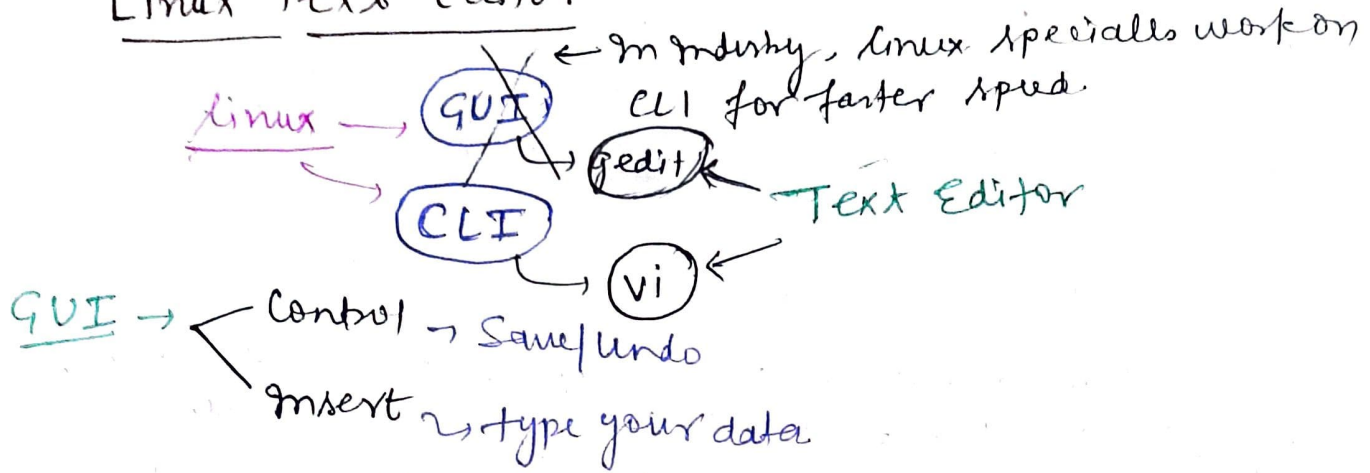 Linux Text Editor
← In Industry, linux specialls work on
CLI for faster speed.
linux → GUI
→ gedit
CLI
→ vi
Text Editor
GUI →
Control → Save/Undo
Insert → type your data